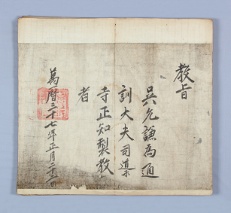 教旨
吳允謙爲通
訓大夫司䆃
寺正知製教
者
萬曆三十七年正月二十日